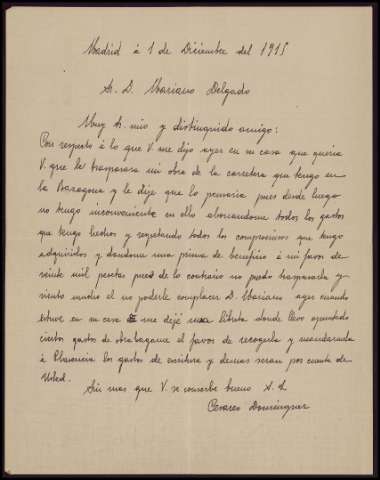 Madrid á 1 de Diciembre del 1915
A. D. Mariano Delgado
Muy S. mio y distinguido amigo:
Con respecto á lo que V me dijo ayer en su casa que queria
V. que le traspasara mi obra de la carretera que tengo en
la Baragona y le dije que lo pensaria pues desde luego
no tengo inconveniente en ello abonandome todos los gastos
que tengo hechos y respetando todos los compromisos que tengo
adquiridos y dandome una prima de beneficio á mi favor de
veinte mil pesetas pues de lo contrario no puedo traspasarla y
siento mucho el no poderle complacer D. Mariano ayer cuando
estuve en su casa me dejé una libreta donde llevo apuntado
ciertos gastos de obra hagame el favor de recogerla y mandarmela
á Plasencia los gastos de escritura y demas seran por cuenta de
Usted.
Sin mas que V. se conserve bueno S. S.
Cesareo Dominguez